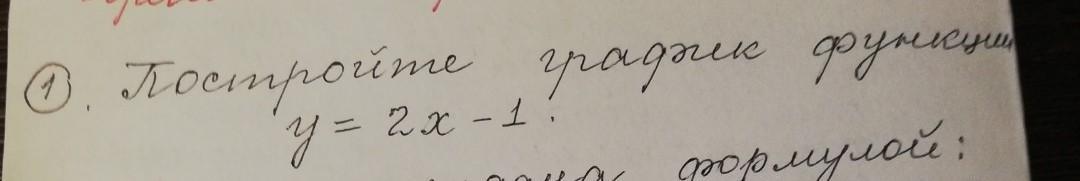 ①. Постройте график функции
y = 2x - 1.
формулой: